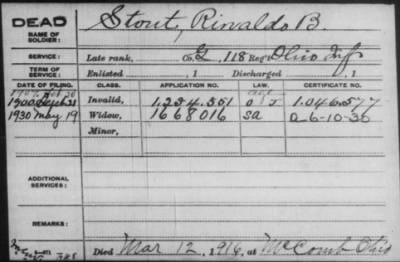 DEAD
NAME OF SOLDIER: Stout, Rinvaldo B.
SERVICE: Late rank, Co. G, 118 Reg't Ohio Inf
TERM OF SERVICE: Enlisted , 1 Discharged , 1
DATE OF FILING. CLASS. APPLICATION NO. LAW. CERTIFICATE NO.
1900 Sept 21 Invalid, 1.254.351 1.046.577
1930 May 19 Widow, 1668016 SA A 6-10-30
Minor,
ADDITIONAL SERVICES:
REMARKS:
Died Mar 12, 1916, at McComb Ohio